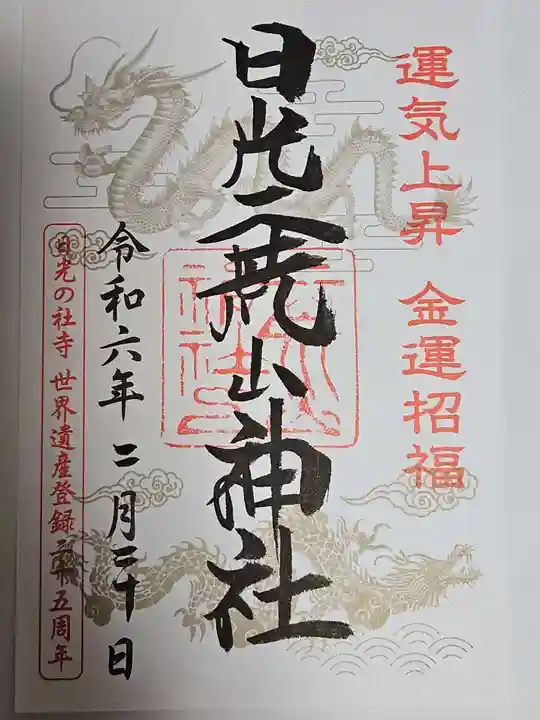 運気上昇 金運招福
日光二荒山神社
令和六年 二月二十日
日光の社寺 世界遺産登録二十五周年